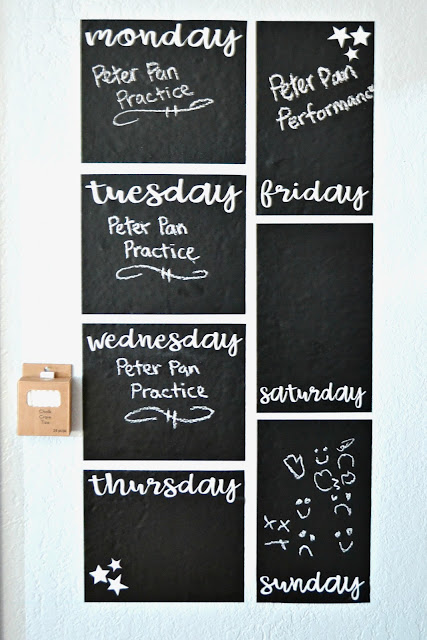 monday
Peter Pan
Practice
tuesday
Peter Pan
Practice
wednesday
Peter Pan
Practice
thursday
Peter Pan
Performance
friday
saturday
xx
sunday